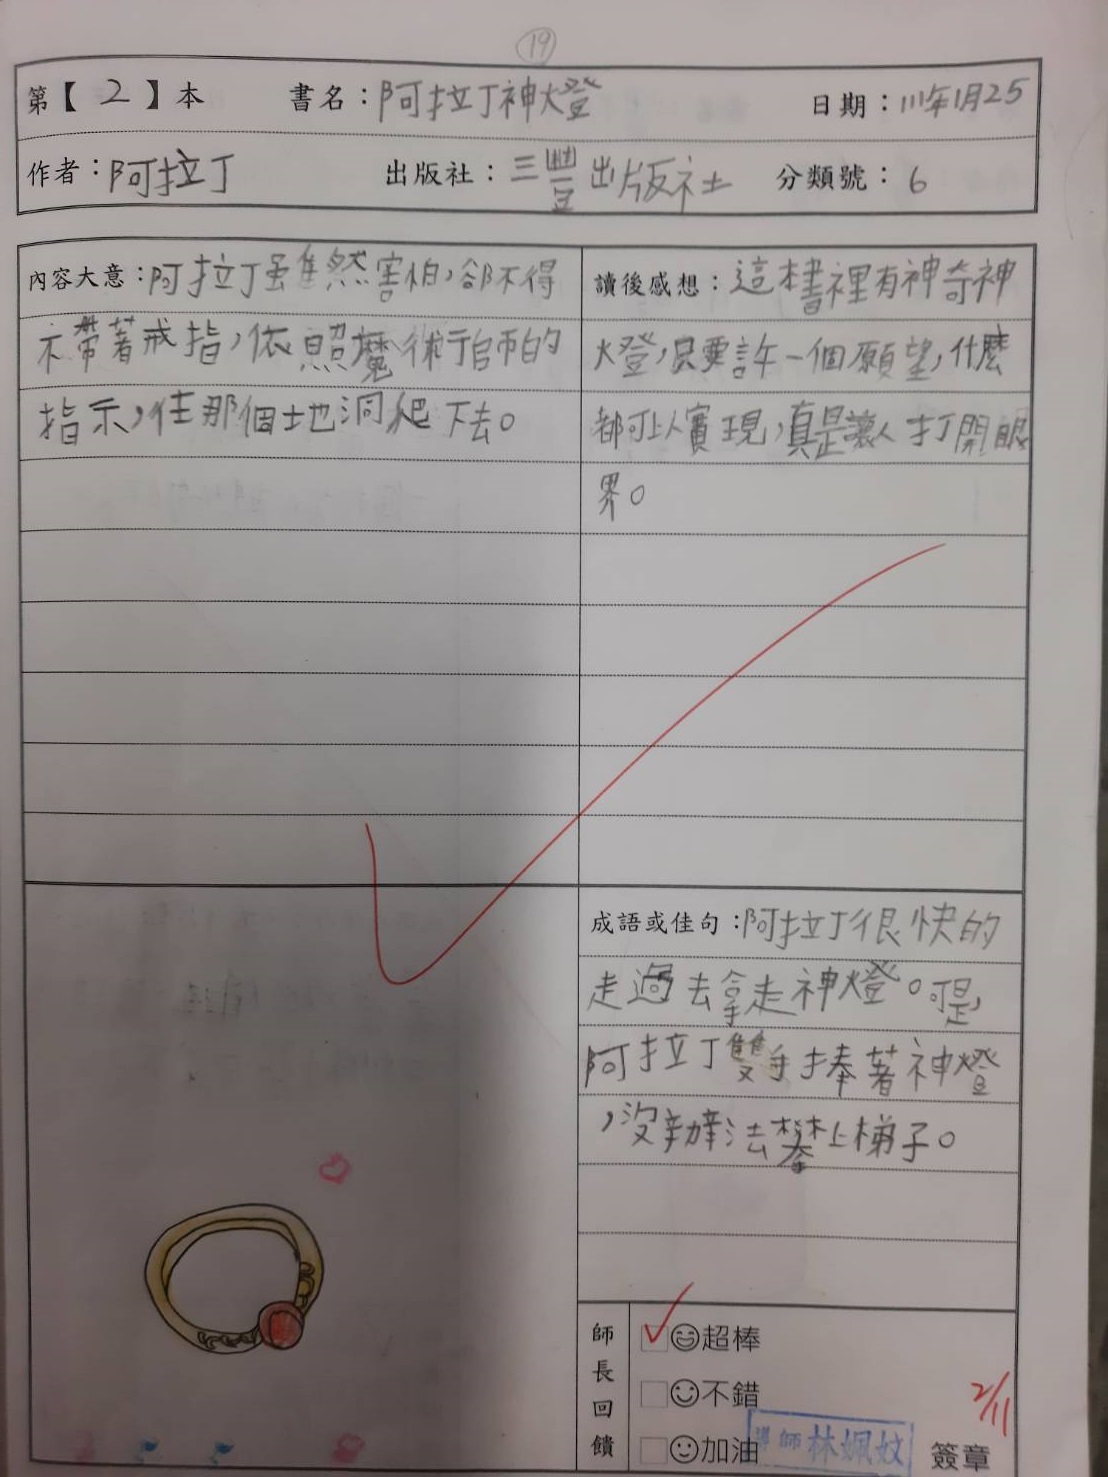 19
第【2】本 書名：阿拉丁神燈 日期：111年1月25
作者：阿拉丁 出版社：三豐出版社 分類號：6
內容大意：阿拉丁虽隹然害怕，卻不得
不帶著戒指，依照魔術師的
指示，往那個地洞爬下去。
讀後感想：這本書裡有神奇神
燈，只要許一個願望，什麼
都可以實現，真是讓人打開眼
界。
成語或佳句：阿拉丁很快的
走過去拿走神燈。可是，
阿拉丁雙手捧著神燈
，沒辦法攀上梯子。
師長回饋
超棒
不錯
加油
導師 林姵妏
2/11
簽章